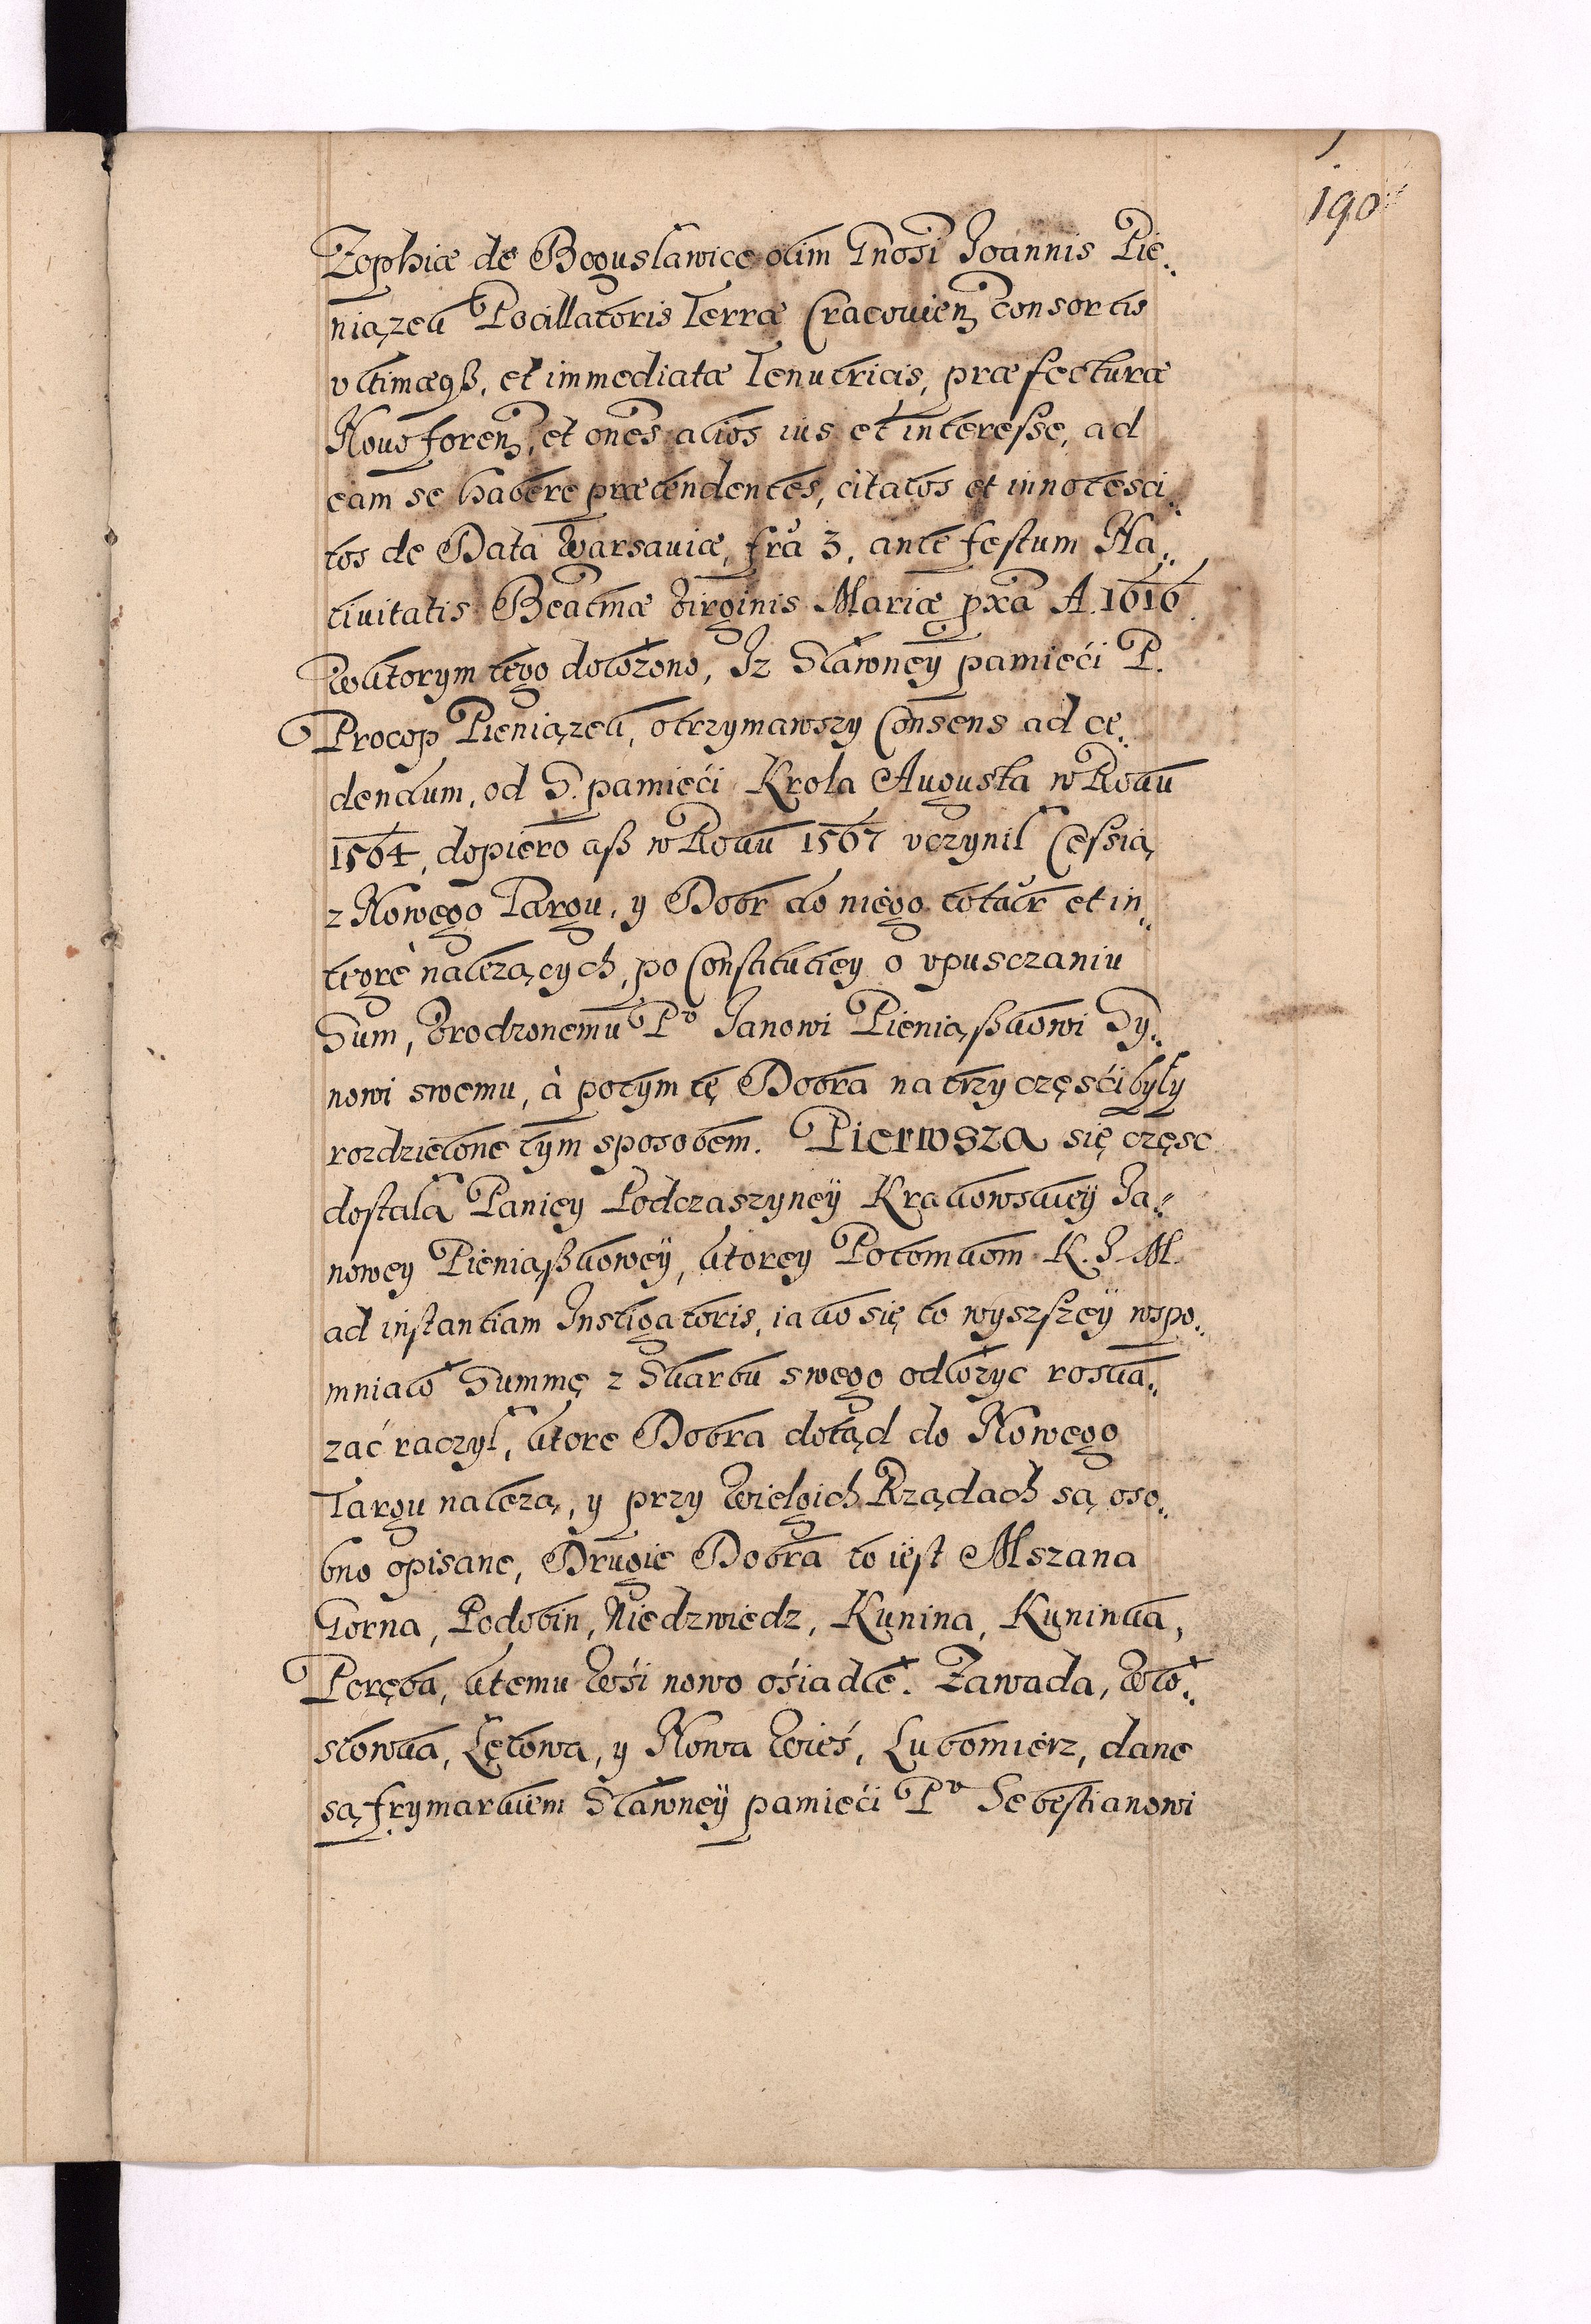 190
Zophiæ de Boguslawice olim Gnosi Joannis Pie„
niązek Pocillatoris Terræ Cracouien consortis
vltimæqß, et immediatæ Tenutricis, præfecturæ
Nouoforen, et ones alios ius et interesse, ad
eam se habere prætendentes, citatos et innotesci„
tos de Data Warsauiæ, fra 3, ante festum Na„
tiuitatis Beatmæ Virginis Mariæ pxa A. 1616
W ktorym tego dołożono, Iz Sławney pamięći P.
Procop Pieniązek, otrzymawszy Consens ad ce„
dendum, od S. pamięći Krola Augusta w Roku
1564, dopiero aß w Roku 1567 vczynił Cessią
z Nowego Targu, y Dobr do niego totalr et in„
tegrè nalezących, po Constitutiey o vpusczaniu
Sum, Vrodzonemu Pv Janowi Pieniąßkowi Sy„
nowi swemu, à potym tę Dobra na trzy częśći były
rozdzielone tym sposobem. Pierwsza się częsc
dostała Paniey Podczaszyneÿ Krakowskieÿ Ja„
nowey Pieniąßkoweÿ, ktorey Potomkom K. J. M.
ad instantiam Instigatoris, iako się to wyszszeÿ wspo„
mniało Summę z Skarbu swego odłożyc roska„
zać raczył, ktore Dobra dotąd do Nowego
Targu nalezą, y przy Wielgich Rządach są oso„
bno opisane, Drugie Dobra to iest Mszana
Gorna, Podobin, Niedzwiedz, Kunina, Kuninka,
Poręba, ktemu Wśi nowo ośiadłe. Zawada, Wło„
stowka, Łętowa, y Nowa Wieś, Lubomierz, dane
są frymarkiem Sławneÿ pamięći Pv Sebestianowi